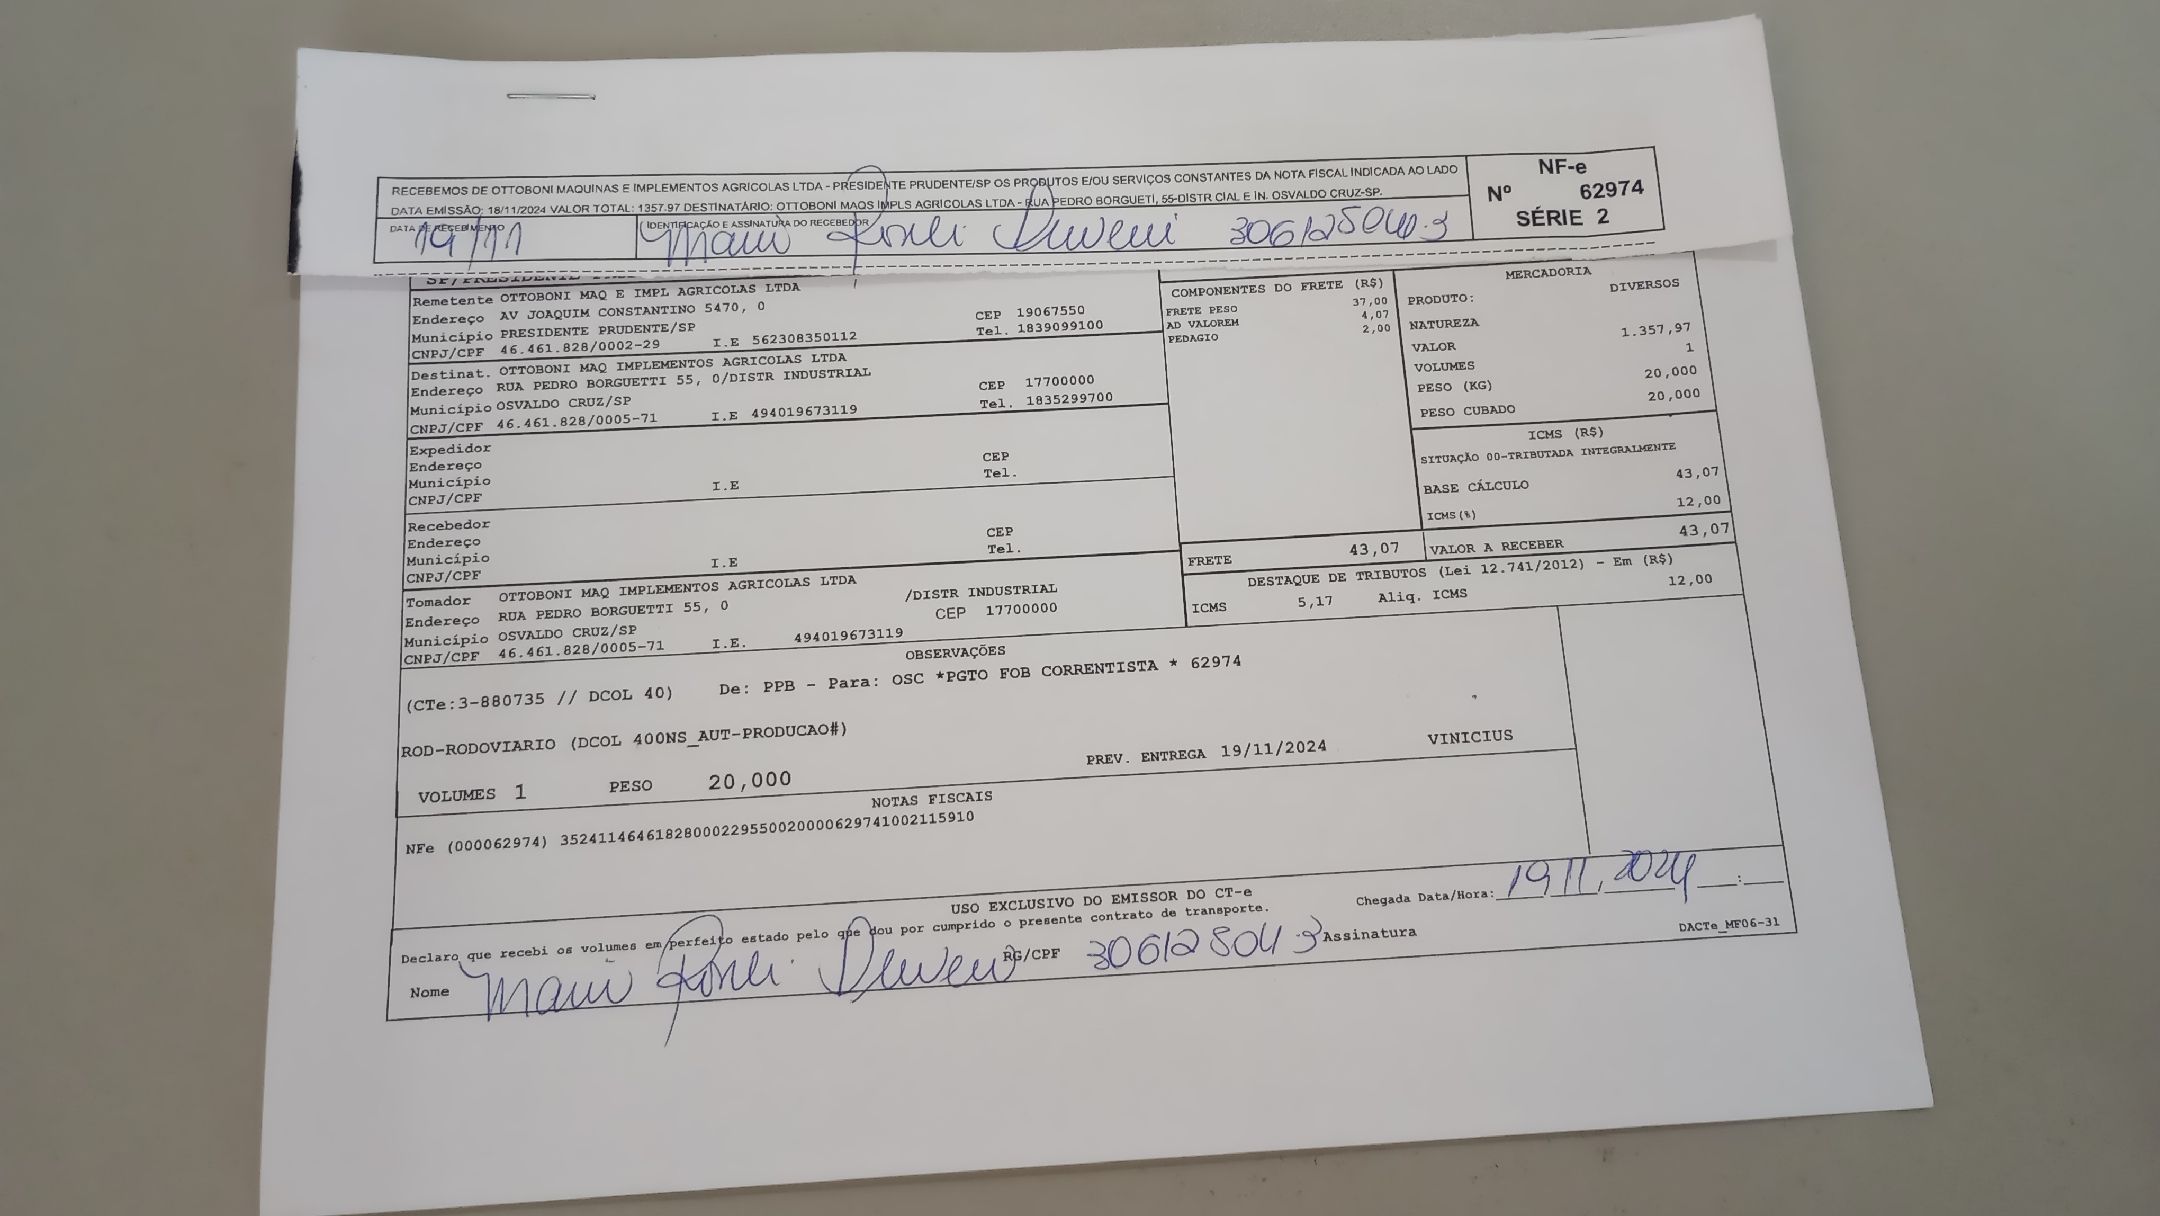 RECEBEMOS DE OTTOBONI MAQUINAS E IMPLEMENTOS AGRICOLAS LTDA - PRESIDENTE PRUDENTE/SP OS PRODUTOS E/OU SERVIÇOS CONSTANTES DA NOTA FISCAL INDICADA AO LADO
DATA EMISSÃO: 18/11/2024 VALOR TOTAL: 1357.97 DESTINATÁRIO: OTTOBONI MAQS IMPLS AGRICOLAS LTDA - RUA PEDRO BORGUETI, 55-DISTR CIAL E IN. OSVALDO CRUZ-SP.
NF-e
Nº 62974
SÉRIE 2
DATA DE RECEBIMENTO
19/11
IDENTIFICAÇÃO E ASSINATURA DO RECEBEDOR
Remetente OTTOBONI MAQ E IMPL AGRICOLAS LTDA
Endereço AV JOAQUIM CONSTANTINO 5470, 0
Município PRESIDENTE PRUDENTE/SP CEP 19067550
CNPJ/CPF 46.461.828/0002-29 I.E 562308350112 Tel. 1839099100
Destinat. OTTOBONI MAQ IMPLEMENTOS AGRICOLAS LTDA
Endereço RUA PEDRO BORGUETTI 55, 0/DISTR INDUSTRIAL
Município OSVALDO CRUZ/SP CEP 17700000
CNPJ/CPF 46.461.828/0005-71 I.E 494019673119 Tel. 1835299700
Expedidor
Endereço CEP
Município Tel.
CNPJ/CPF I.E
Recebedor
Endereço CEP
Município Tel.
CNPJ/CPF I.E
Tomador OTTOBONI MAQ IMPLEMENTOS AGRICOLAS LTDA
Endereço RUA PEDRO BORGUETTI 55, 0 /DISTR INDUSTRIAL
Município OSVALDO CRUZ/SP CEP 17700000
CNPJ/CPF 46.461.828/0005-71 I.E. 494019673119
COMPONENTES DO FRETE (R$)
FRETE PESO 37,00
AD VALOREM 4,07
PEDAGIO 2,00
MERCADORIA
PRODUTO: DIVERSOS
NATUREZA
VALOR 1.357,97
VOLUMES 1
PESO (KG) 20,000
PESO CUBADO 20,000
ICMS (R$)
SITUAÇÃO 00-TRIBUTADA INTEGRALMENTE
BASE CÁLCULO 43,07
ICMS(%) 12,00
FRETE 43,07 VALOR A RECEBER 43,07
DESTAQUE DE TRIBUTOS (Lei 12.741/2012) - Em (R$)
ICMS 5,17 Aliq. ICMS 12,00
OBSERVAÇÕES
(CTe:3-880735 // DCOL 40) De: PPB - Para: OSC *PGTO FOB CORRENTISTA * 62974
ROD-RODOVIARIO (DCOL 400NS_AUT-PRODUCAO#)
VOLUMES 1 PESO 20,000 PREV. ENTREGA 19/11/2024 VINICIUS
NOTAS FISCAIS
NFe (000062974) 35241146461828000229550020000629741002115910
USO EXCLUSIVO DO EMISSOR DO CT-e
Declaro que recebi os volumes em perfeito estado pelo que dou por cumprido o presente contrato de transporte.
Chegada Data/Hora: 19 11, 2024 :
Nome RG/CPF 30612804 3 Assinatura
DACTe_MF06-31